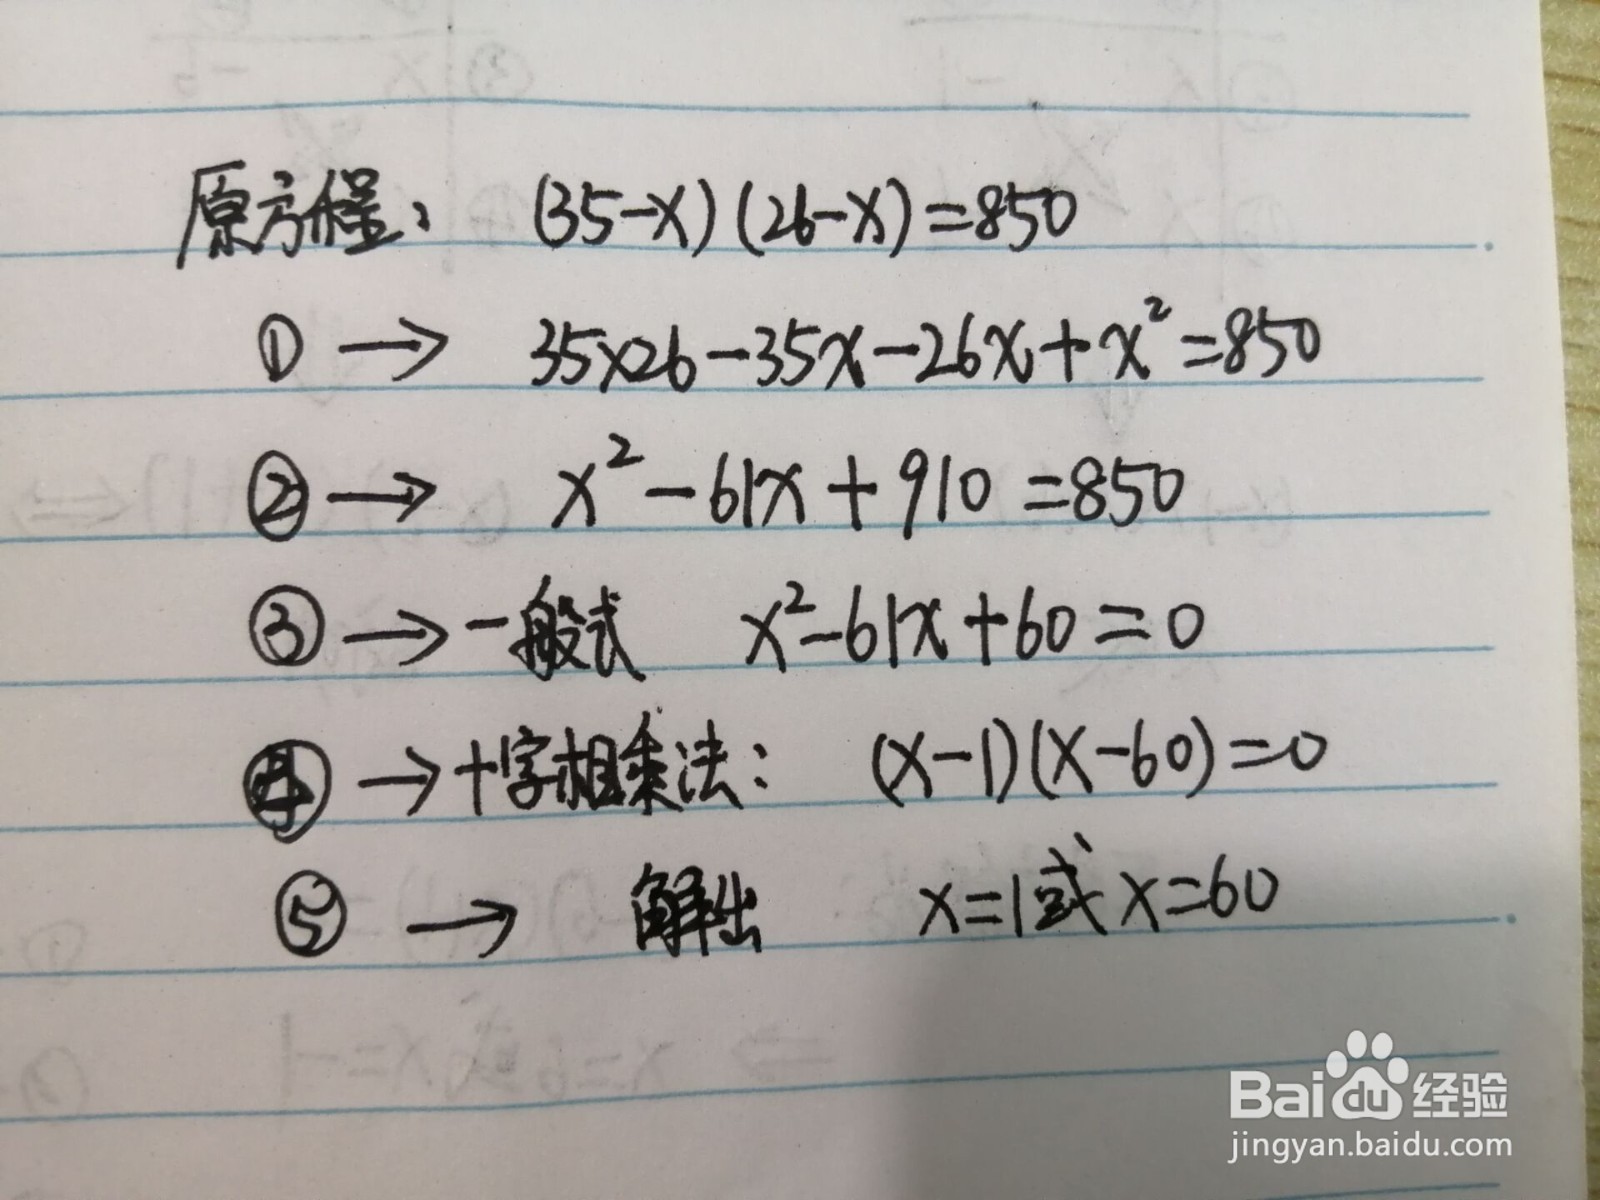 原方程： (35-x)(26-x)=850
① → 35×26-35x-26x+x²=850
② → x²-61x+910=850
③ → 一般式 x²-61x+60=0
④ → 十字相乘法： (x-1)(x-60)=0
⑤ → 解出 x=1或x=60
Baidu经验
jingyan.baidu.com